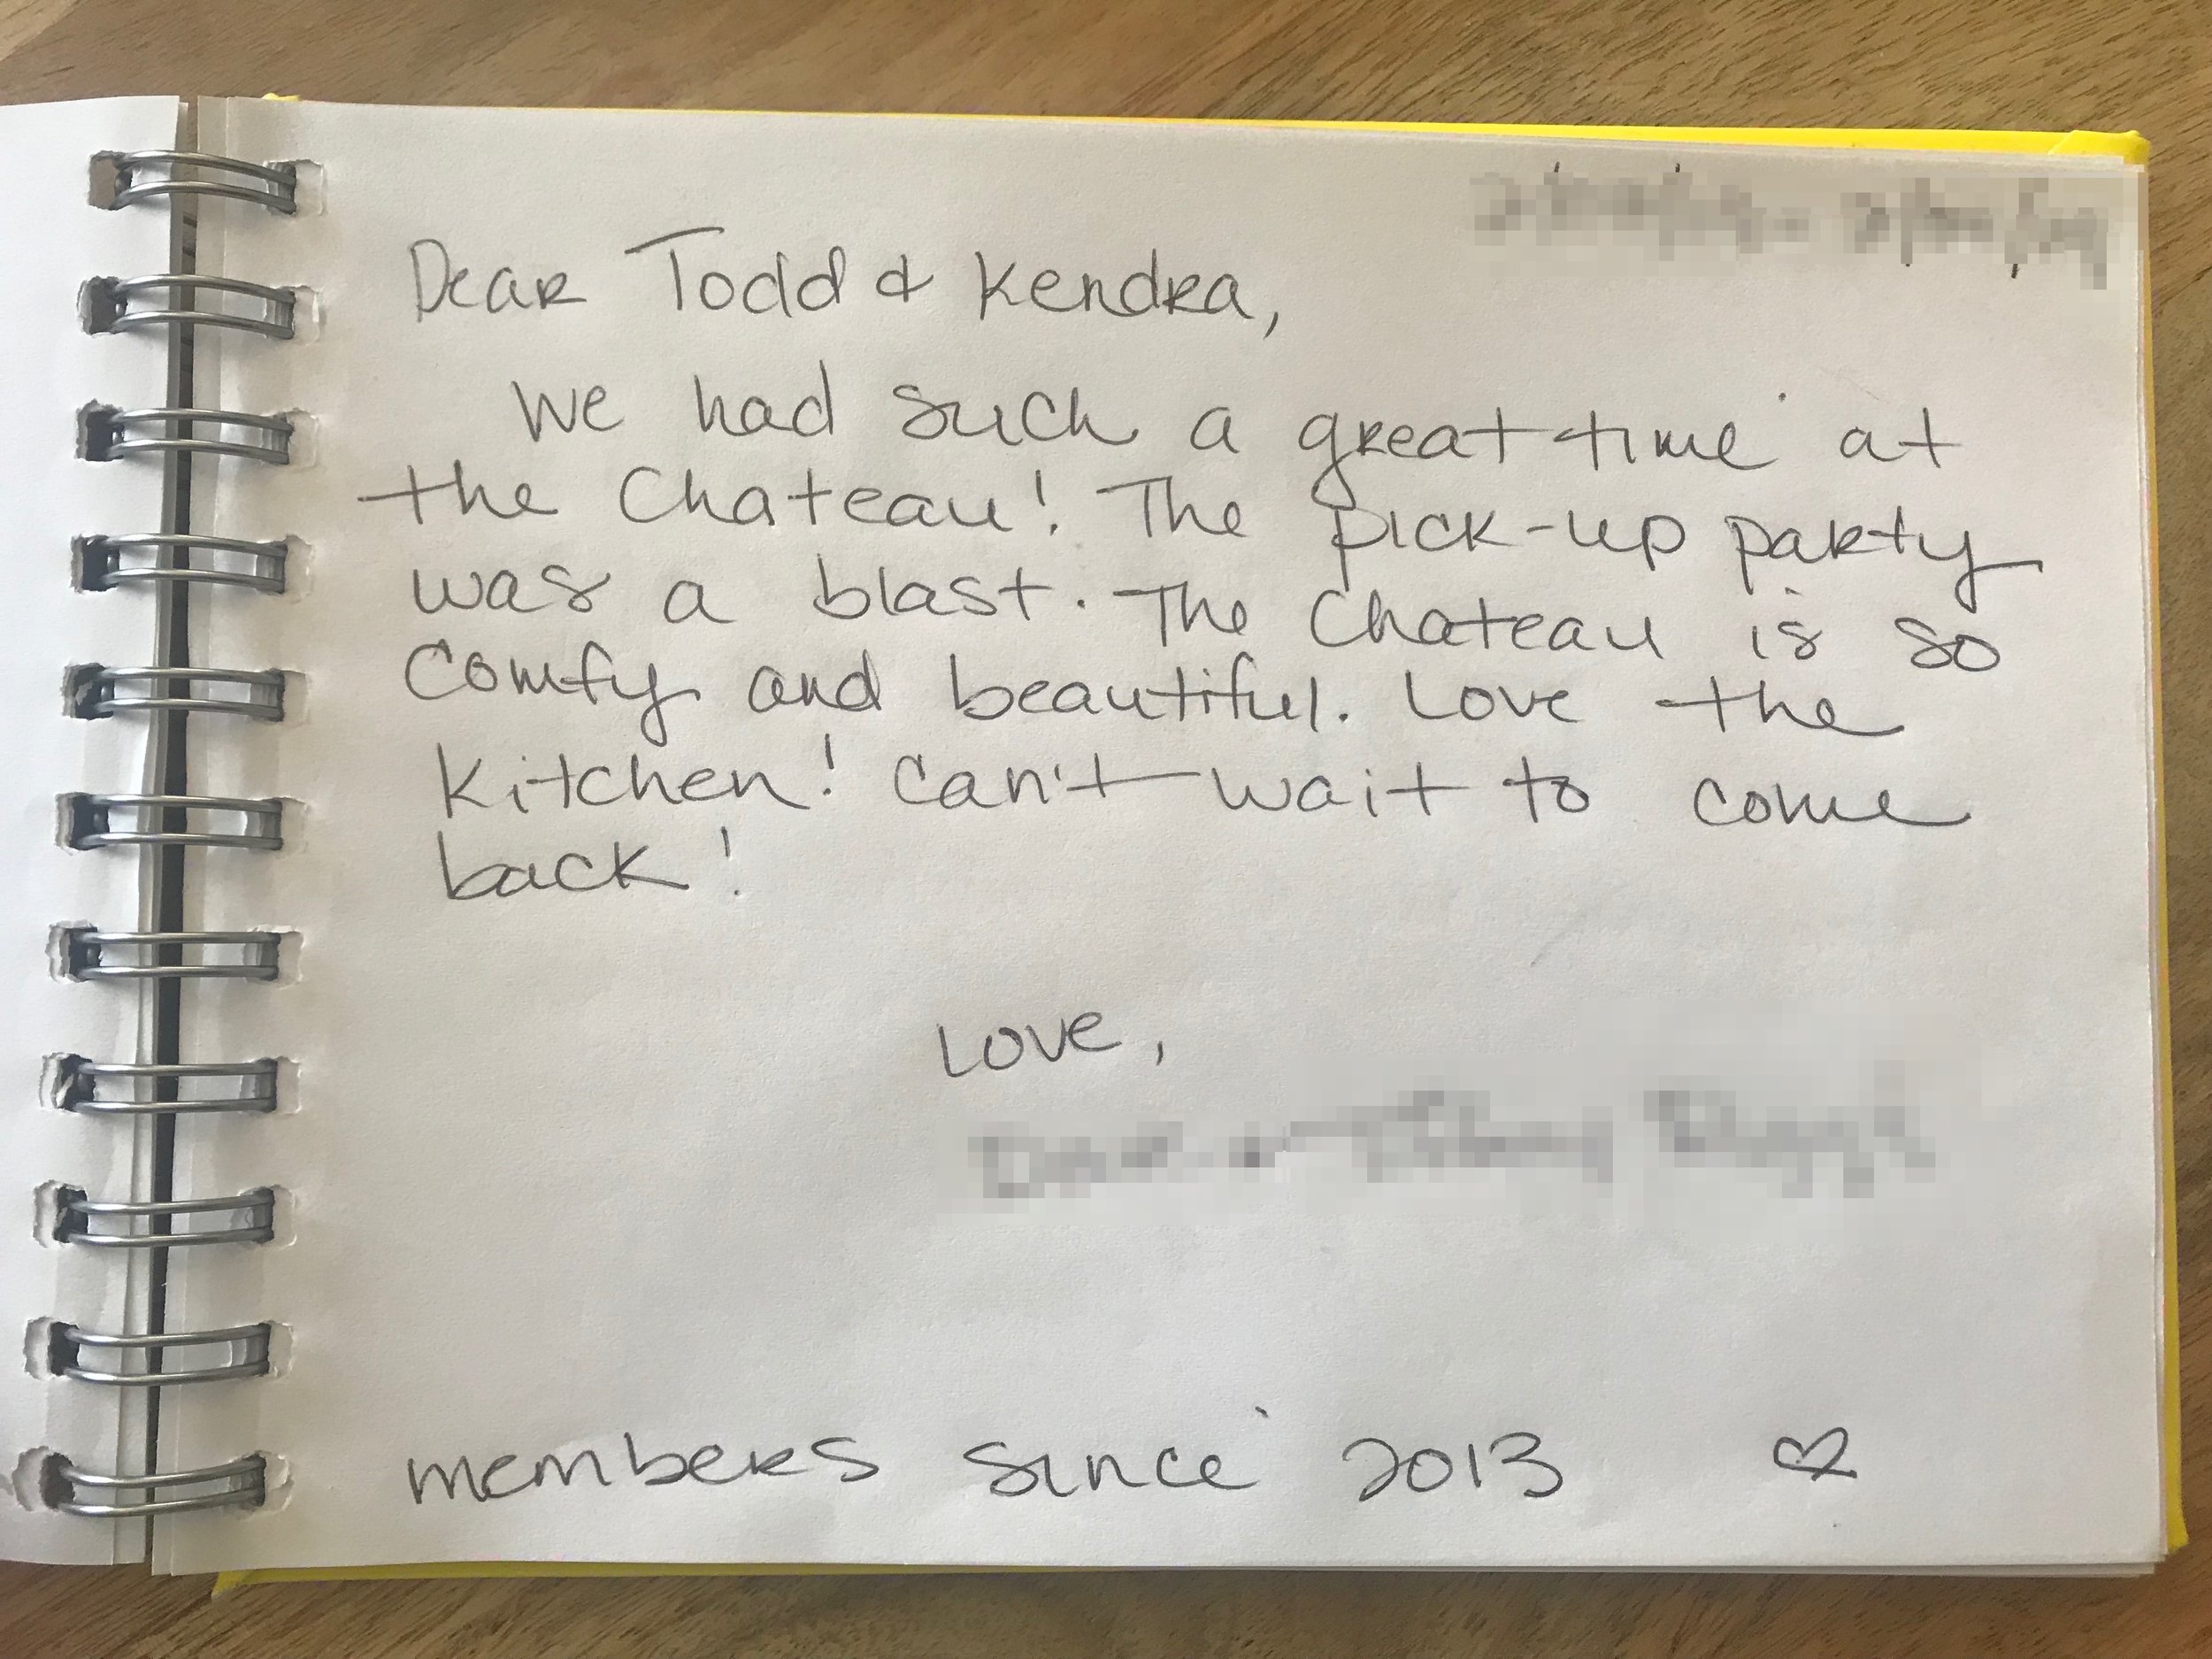 Dear Todd & Kendra,
We had such a great time at
the Chateau! The pick-up party
was a blast. The Chateau is so
comfy and beautiful. Love the
kitchen! Can't wait to come
back!
Love,
members since 2013 ♡